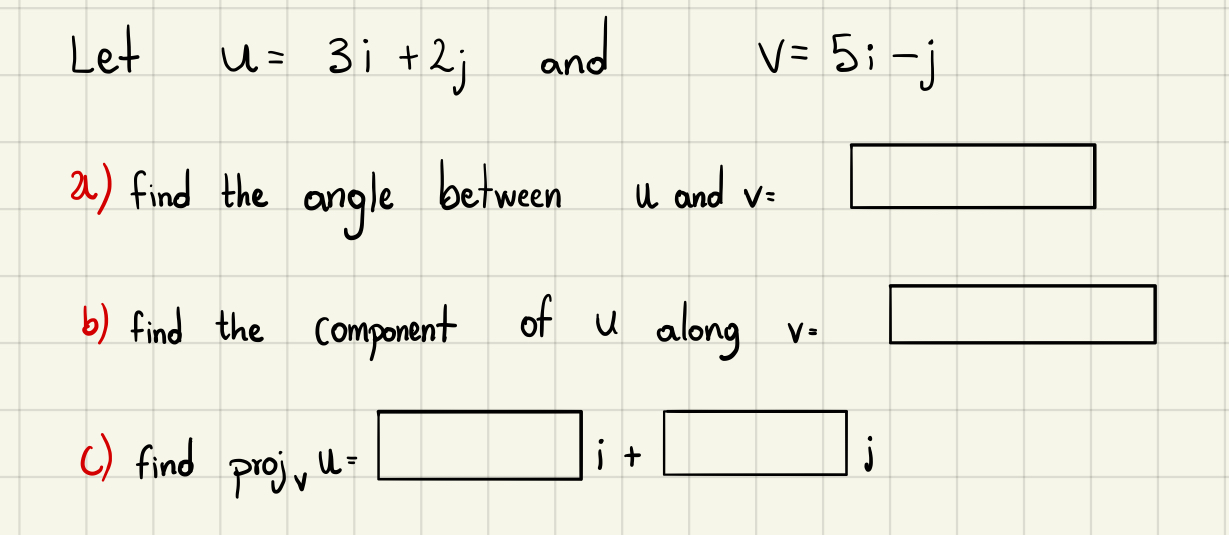 Let u= 3i +2j and v= 5i -j
a) find the angle between u and v=
b) find the component of u along v=
c) find proj_v u= i + j